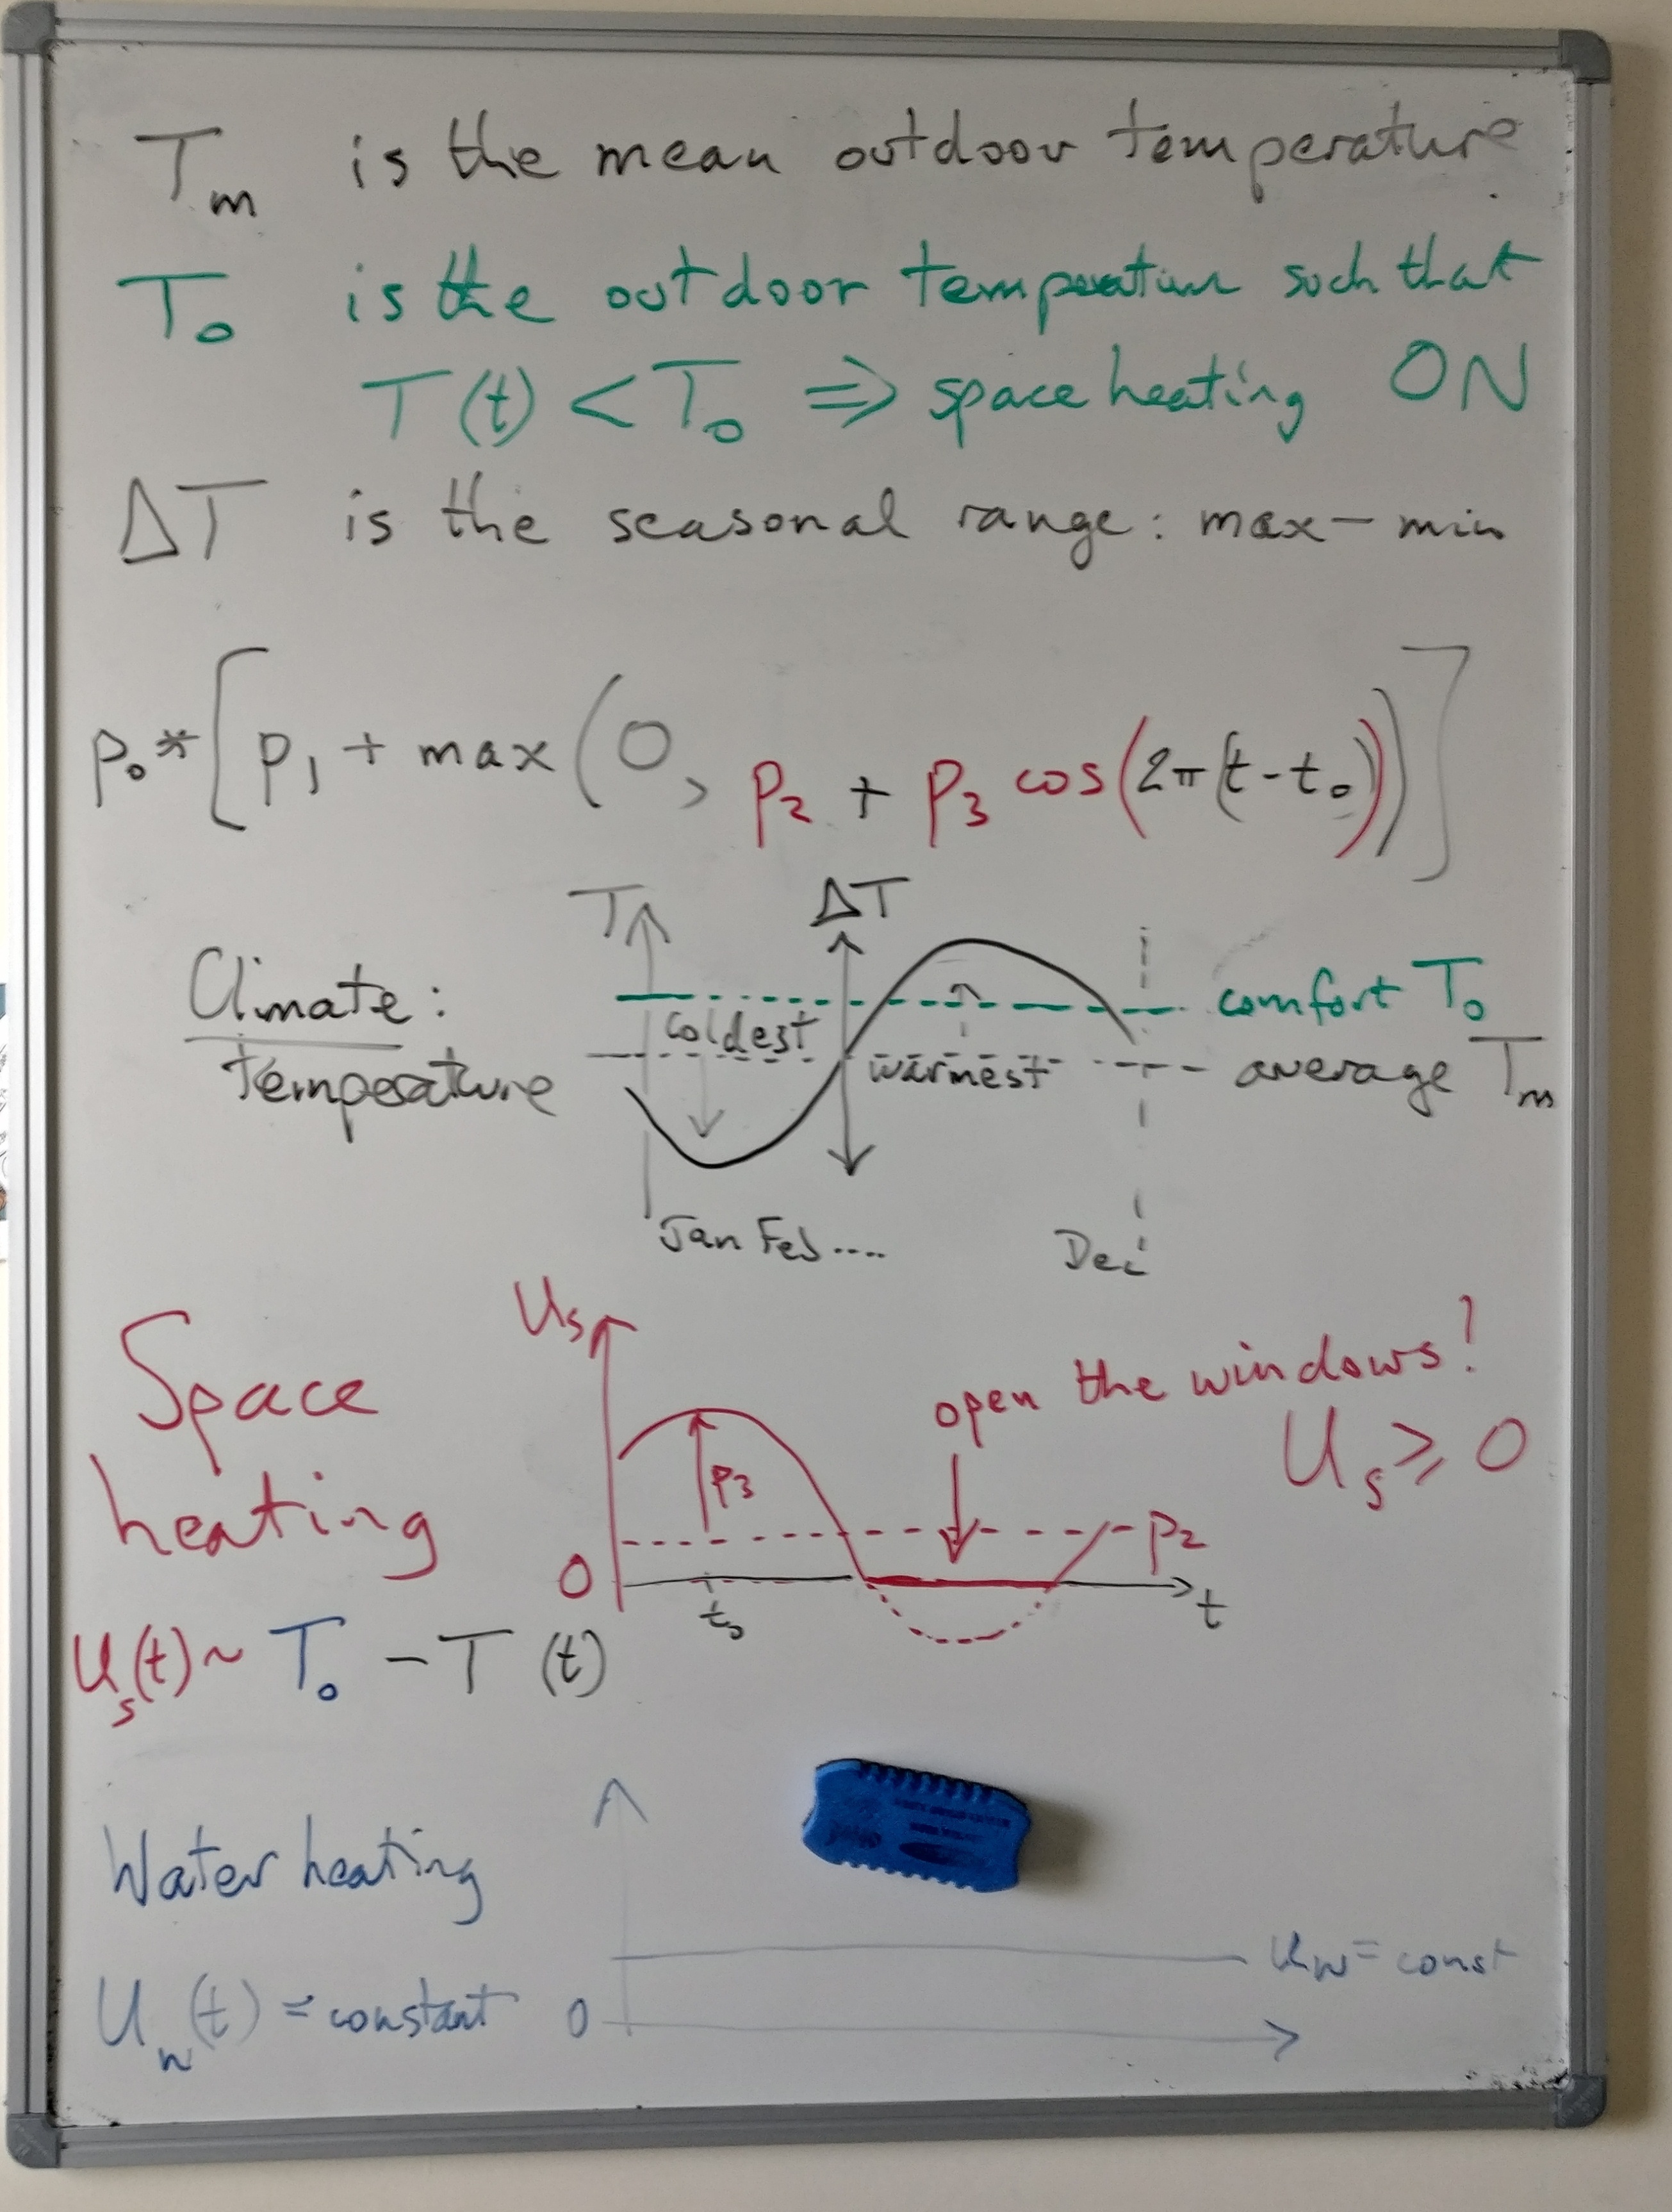 Tm is the mean outdoor temperature.
To is the outdoor temperature such that
T(t) < To ⇒ space heating ON
ΔT is the seasonal range: max - min
p0 * [p1 + max(0, p2 + p3 cos(2π(t-t0))]
T ΔT
Climate:
temperature
coldest
warmest
comfort To
average Tm
Jan Feb .... Dec
Space
heating
Us
open the windows!
Us ⩾ 0
p3
p2
0
t0
t
Us(t) ~ To - T(t)
Water heating
Uw = const
Uw(t) = constant
0